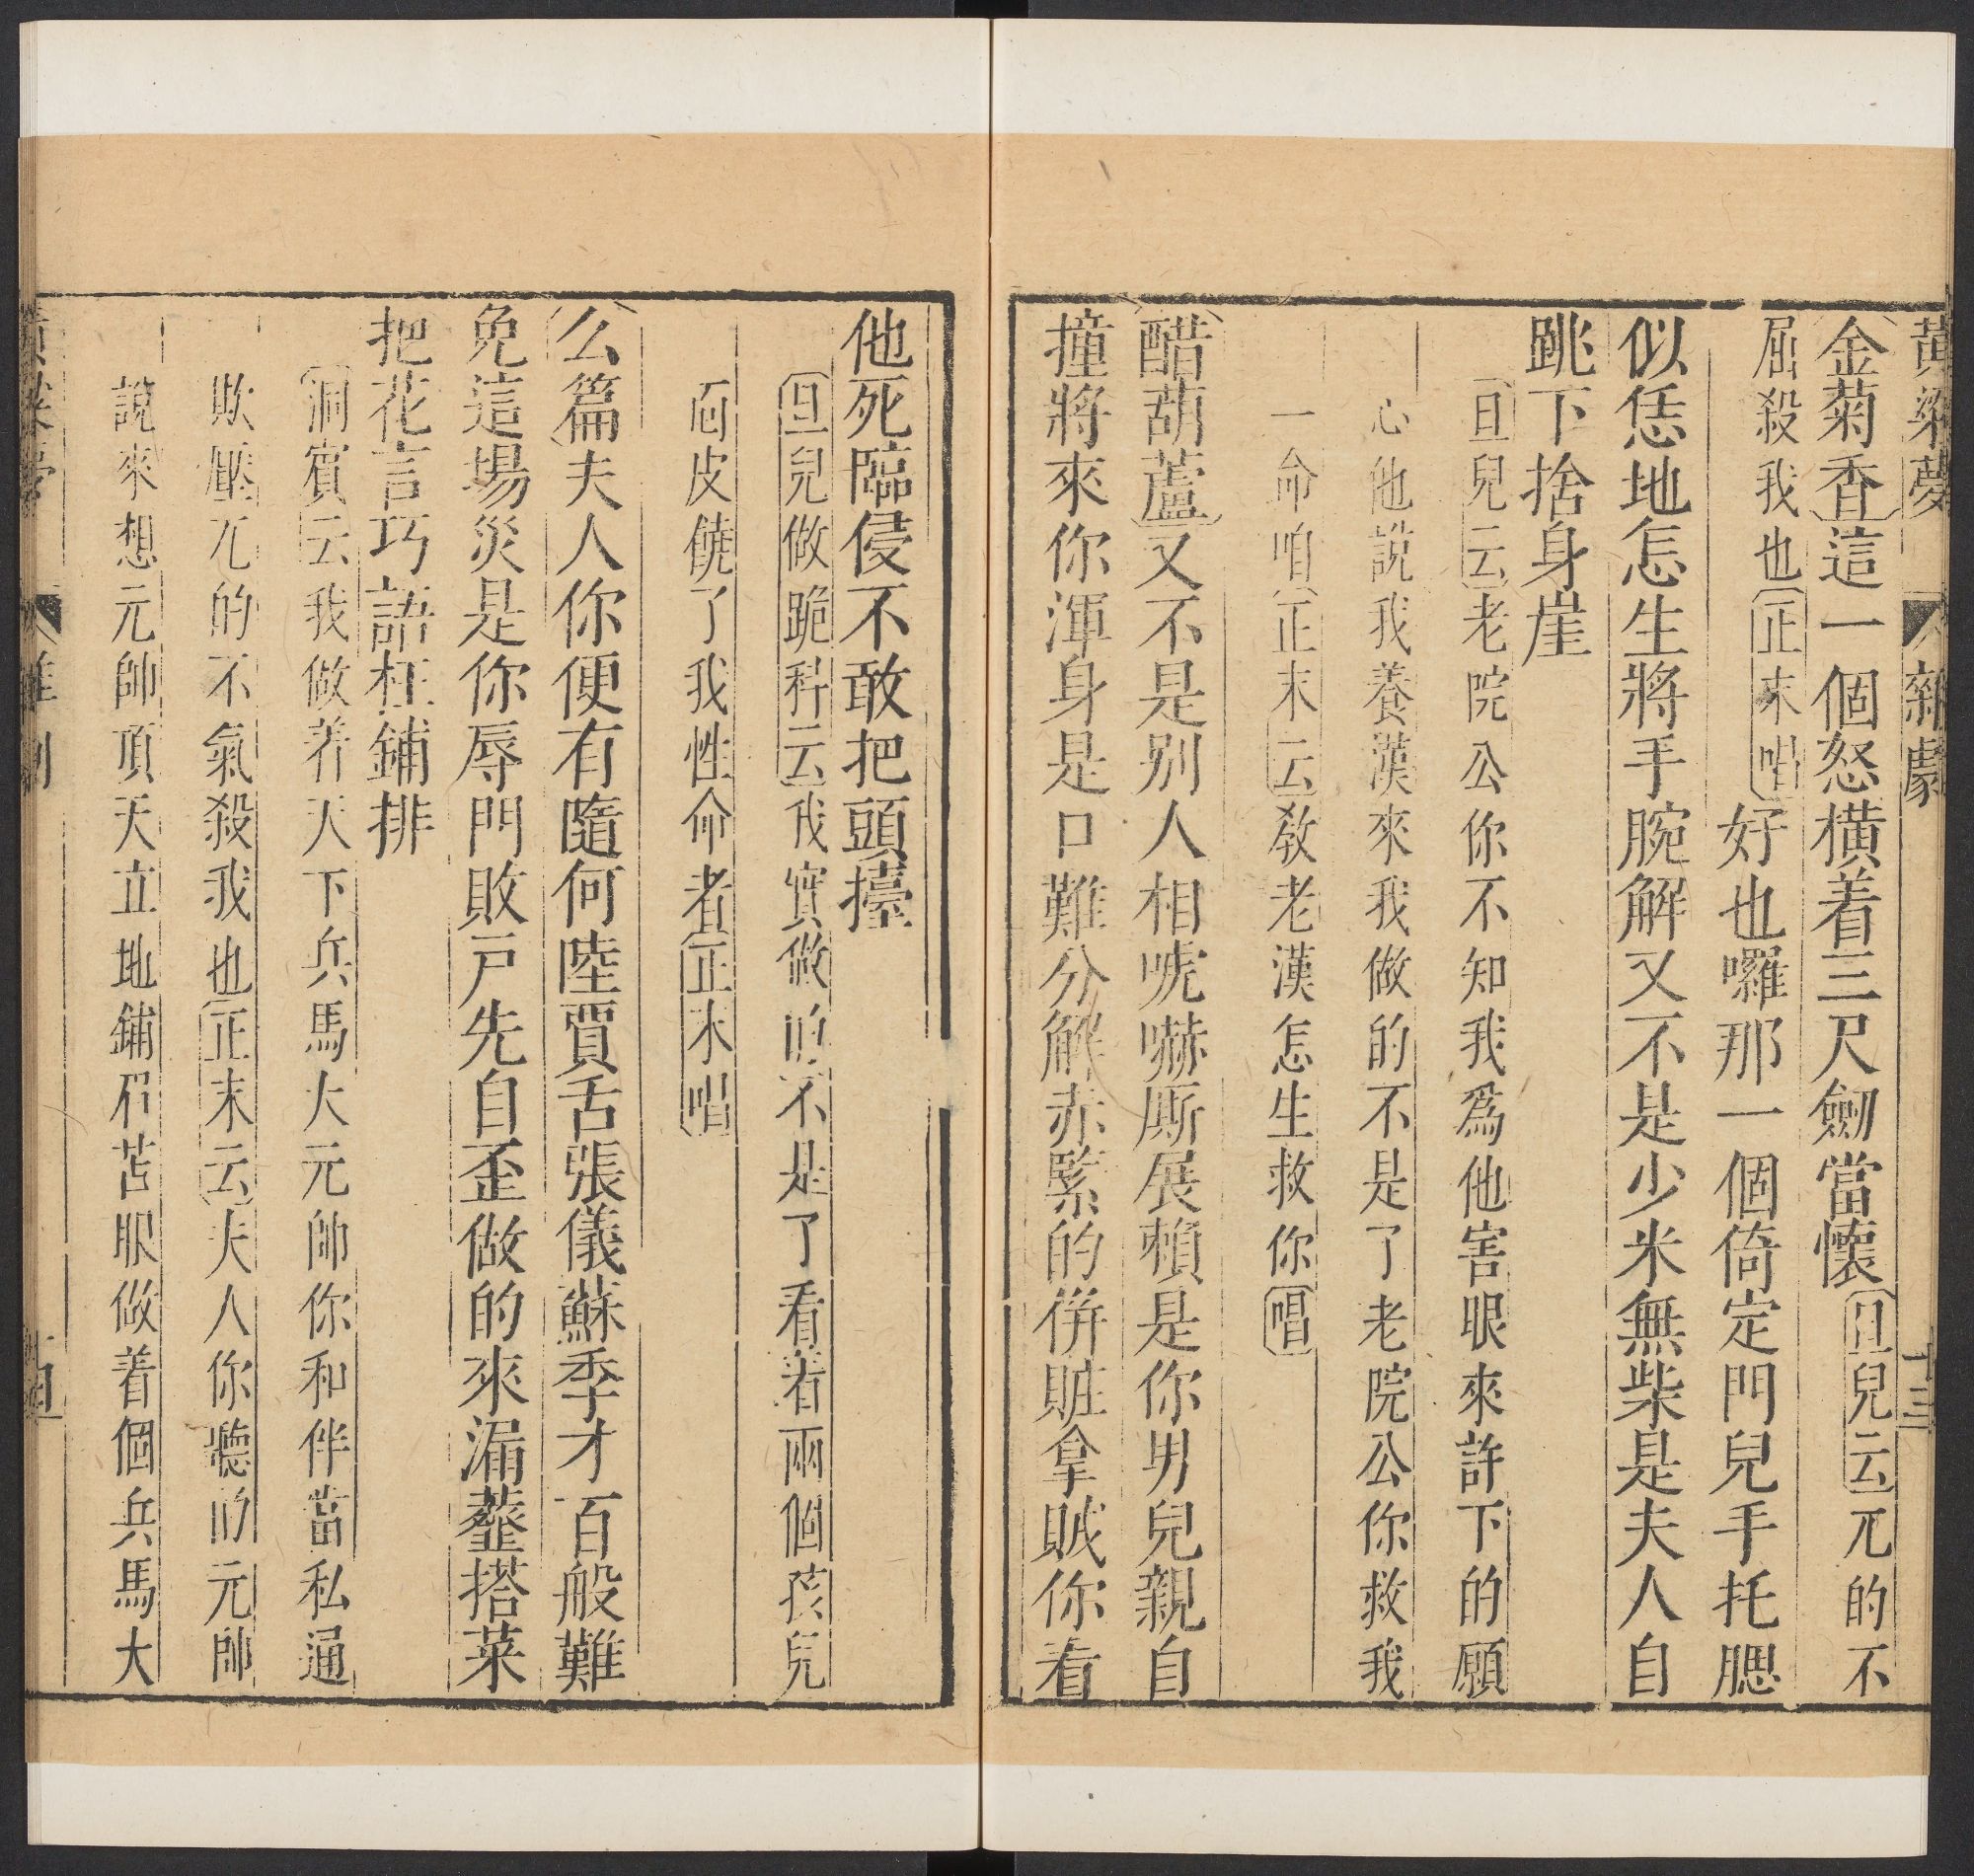 黃粱夢 雜劇 十三
金菊香這一個怒橫着三尺劒當懷旦兒云兀的不
屈殺我也正末唱好也囉那一個倚定門兒手托腮
似恁地怎生將手腕解又不是少米無柴是夫人自
跳下捨身崖
旦兒云老院公你不知我爲他害眼來許下的願
心他說我養漢來我做的不是了老院公你救我
一命咱正末云教老漢怎生救你唱
醋葫蘆又不是別人相唬嚇厮展賴是你男兒親自
撞將來你渾身是口難分解赤緊的併賍拿賊你看
他死臨侵不敢把頭擡
旦兒做跪科云我實做的不是了看着兩個孩兒
面皮饒了我性命者正末唱
么篇夫人你便有隨何陸賈舌張儀蘇季才百般難
免這場災是你辱門敗戸先自歪做的來漏虀搭菜
把花言巧語枉鋪排
洞賓云我做着天下兵馬大元帥你和伴當私通
欺壓兀的不氣殺我也正末云夫人你聽的元帥
說來想元帥頂天立地鋪眉苫眼做着個兵馬大
黃粱夢 雜劇